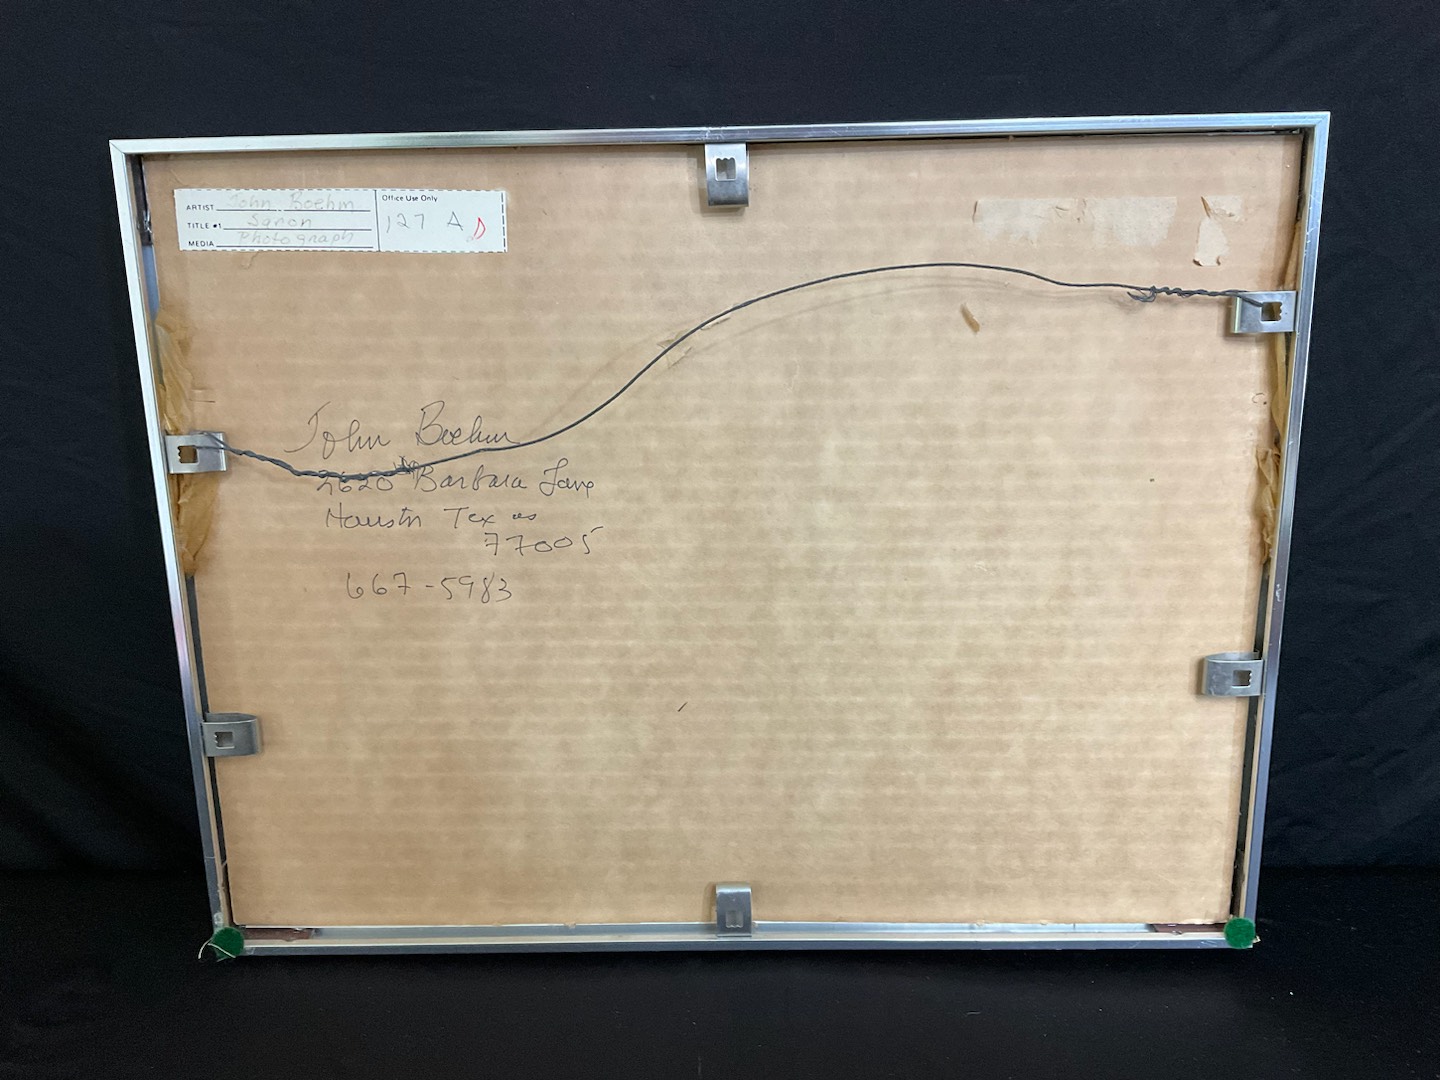 ARTIST John Boehm
TITLE #1 Sanon
MEDIA Photograph
Office Use Only
127 A D
John Boehm
2620 Barbara Lane
Houston Texas
77005
667-5983